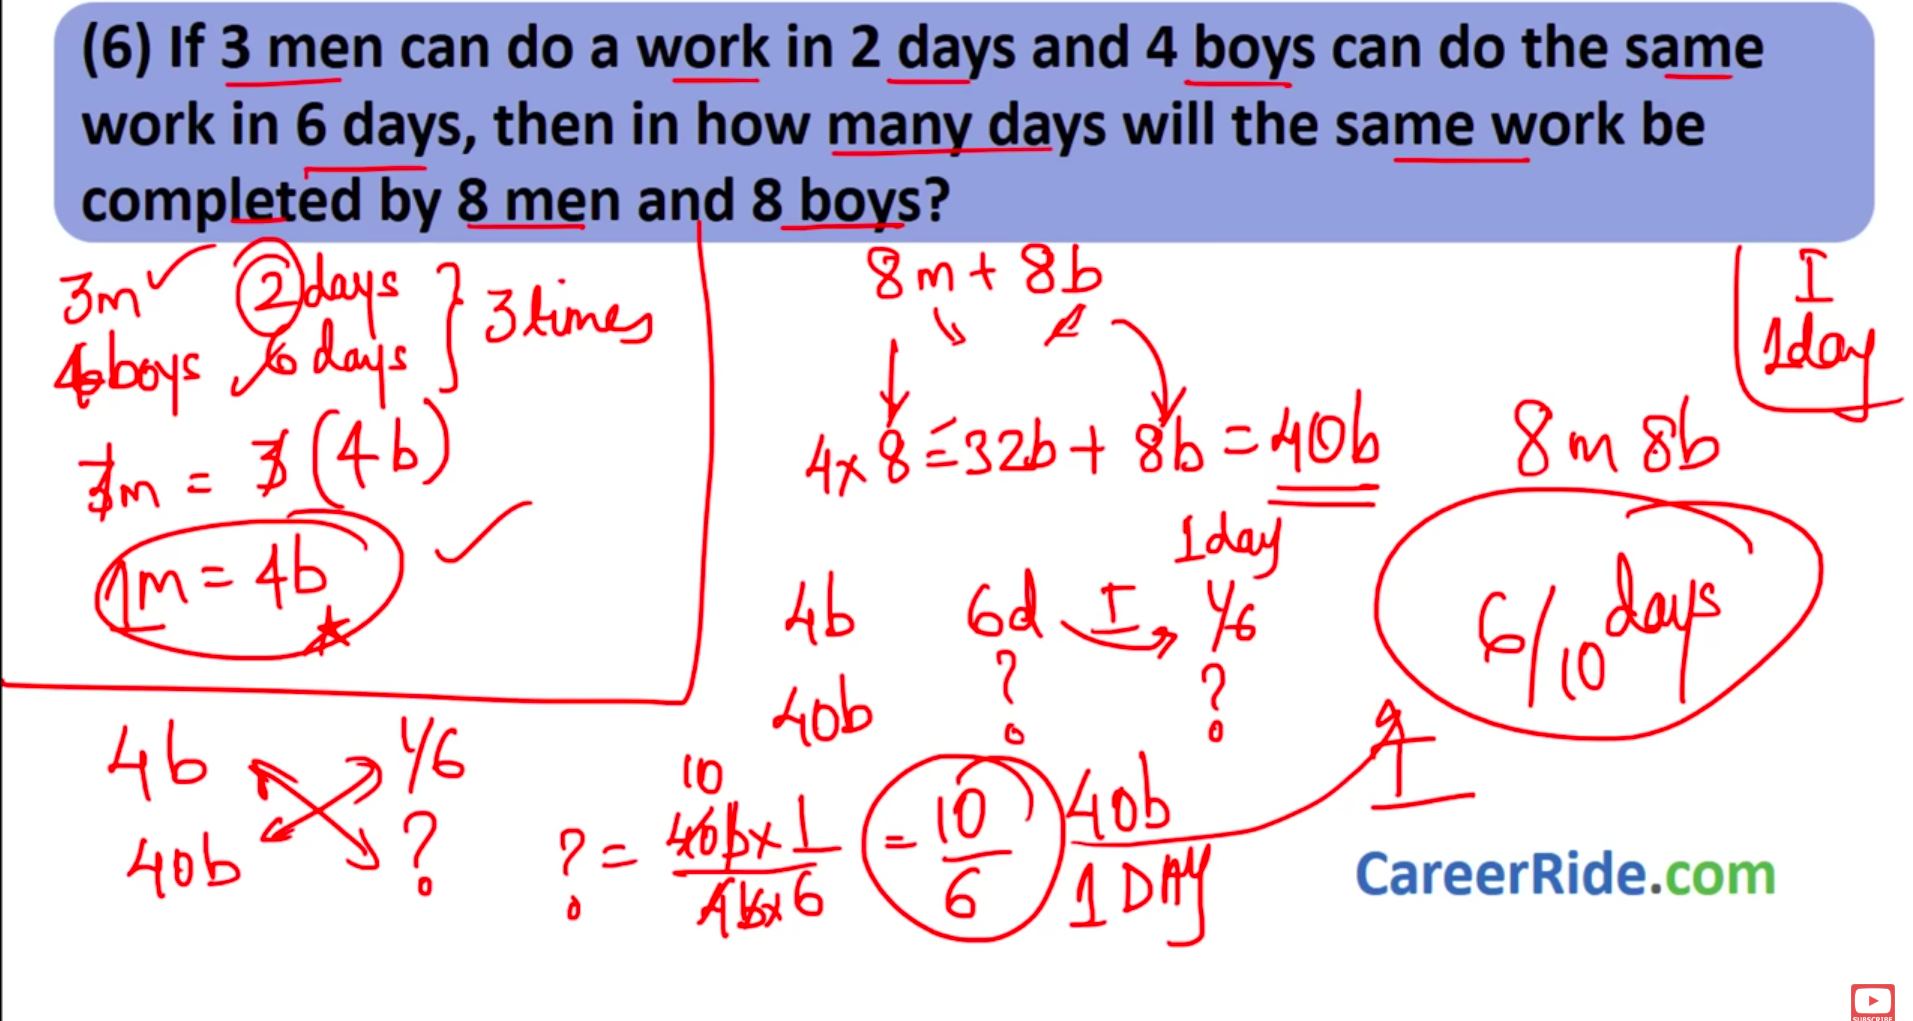 (6) If 3 men can do a work in 2 days and 4 boys can do the same
work in 6 days, then in how many days will the same work be
completed by 8 men and 8 boys?
3m 2 days
4 boys 6 days
3 times
3m = 3 (4b)
1m = 4b
8m + 8b
4 x 8 = 32b + 8b = 40b
I
1day
8m 8b
6/10 days
1day
4b 6d I 1/6
40b ? ?
I
4b 1/6
40b ?
10
? = 40b x 1 / 4b x 6 = 10/6 40b / 1 DAY
CareerRide.com
SUBSCRIBE